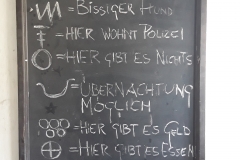 = BISSIGER HUND
= HIER WOHNT POLIZEI
= HIER GIBT ES NICHTS
= ÜBERNACHTUNG
MÖGLICH
= HIER GIBT ES GELD
= HIER GIBT ES ESSEN